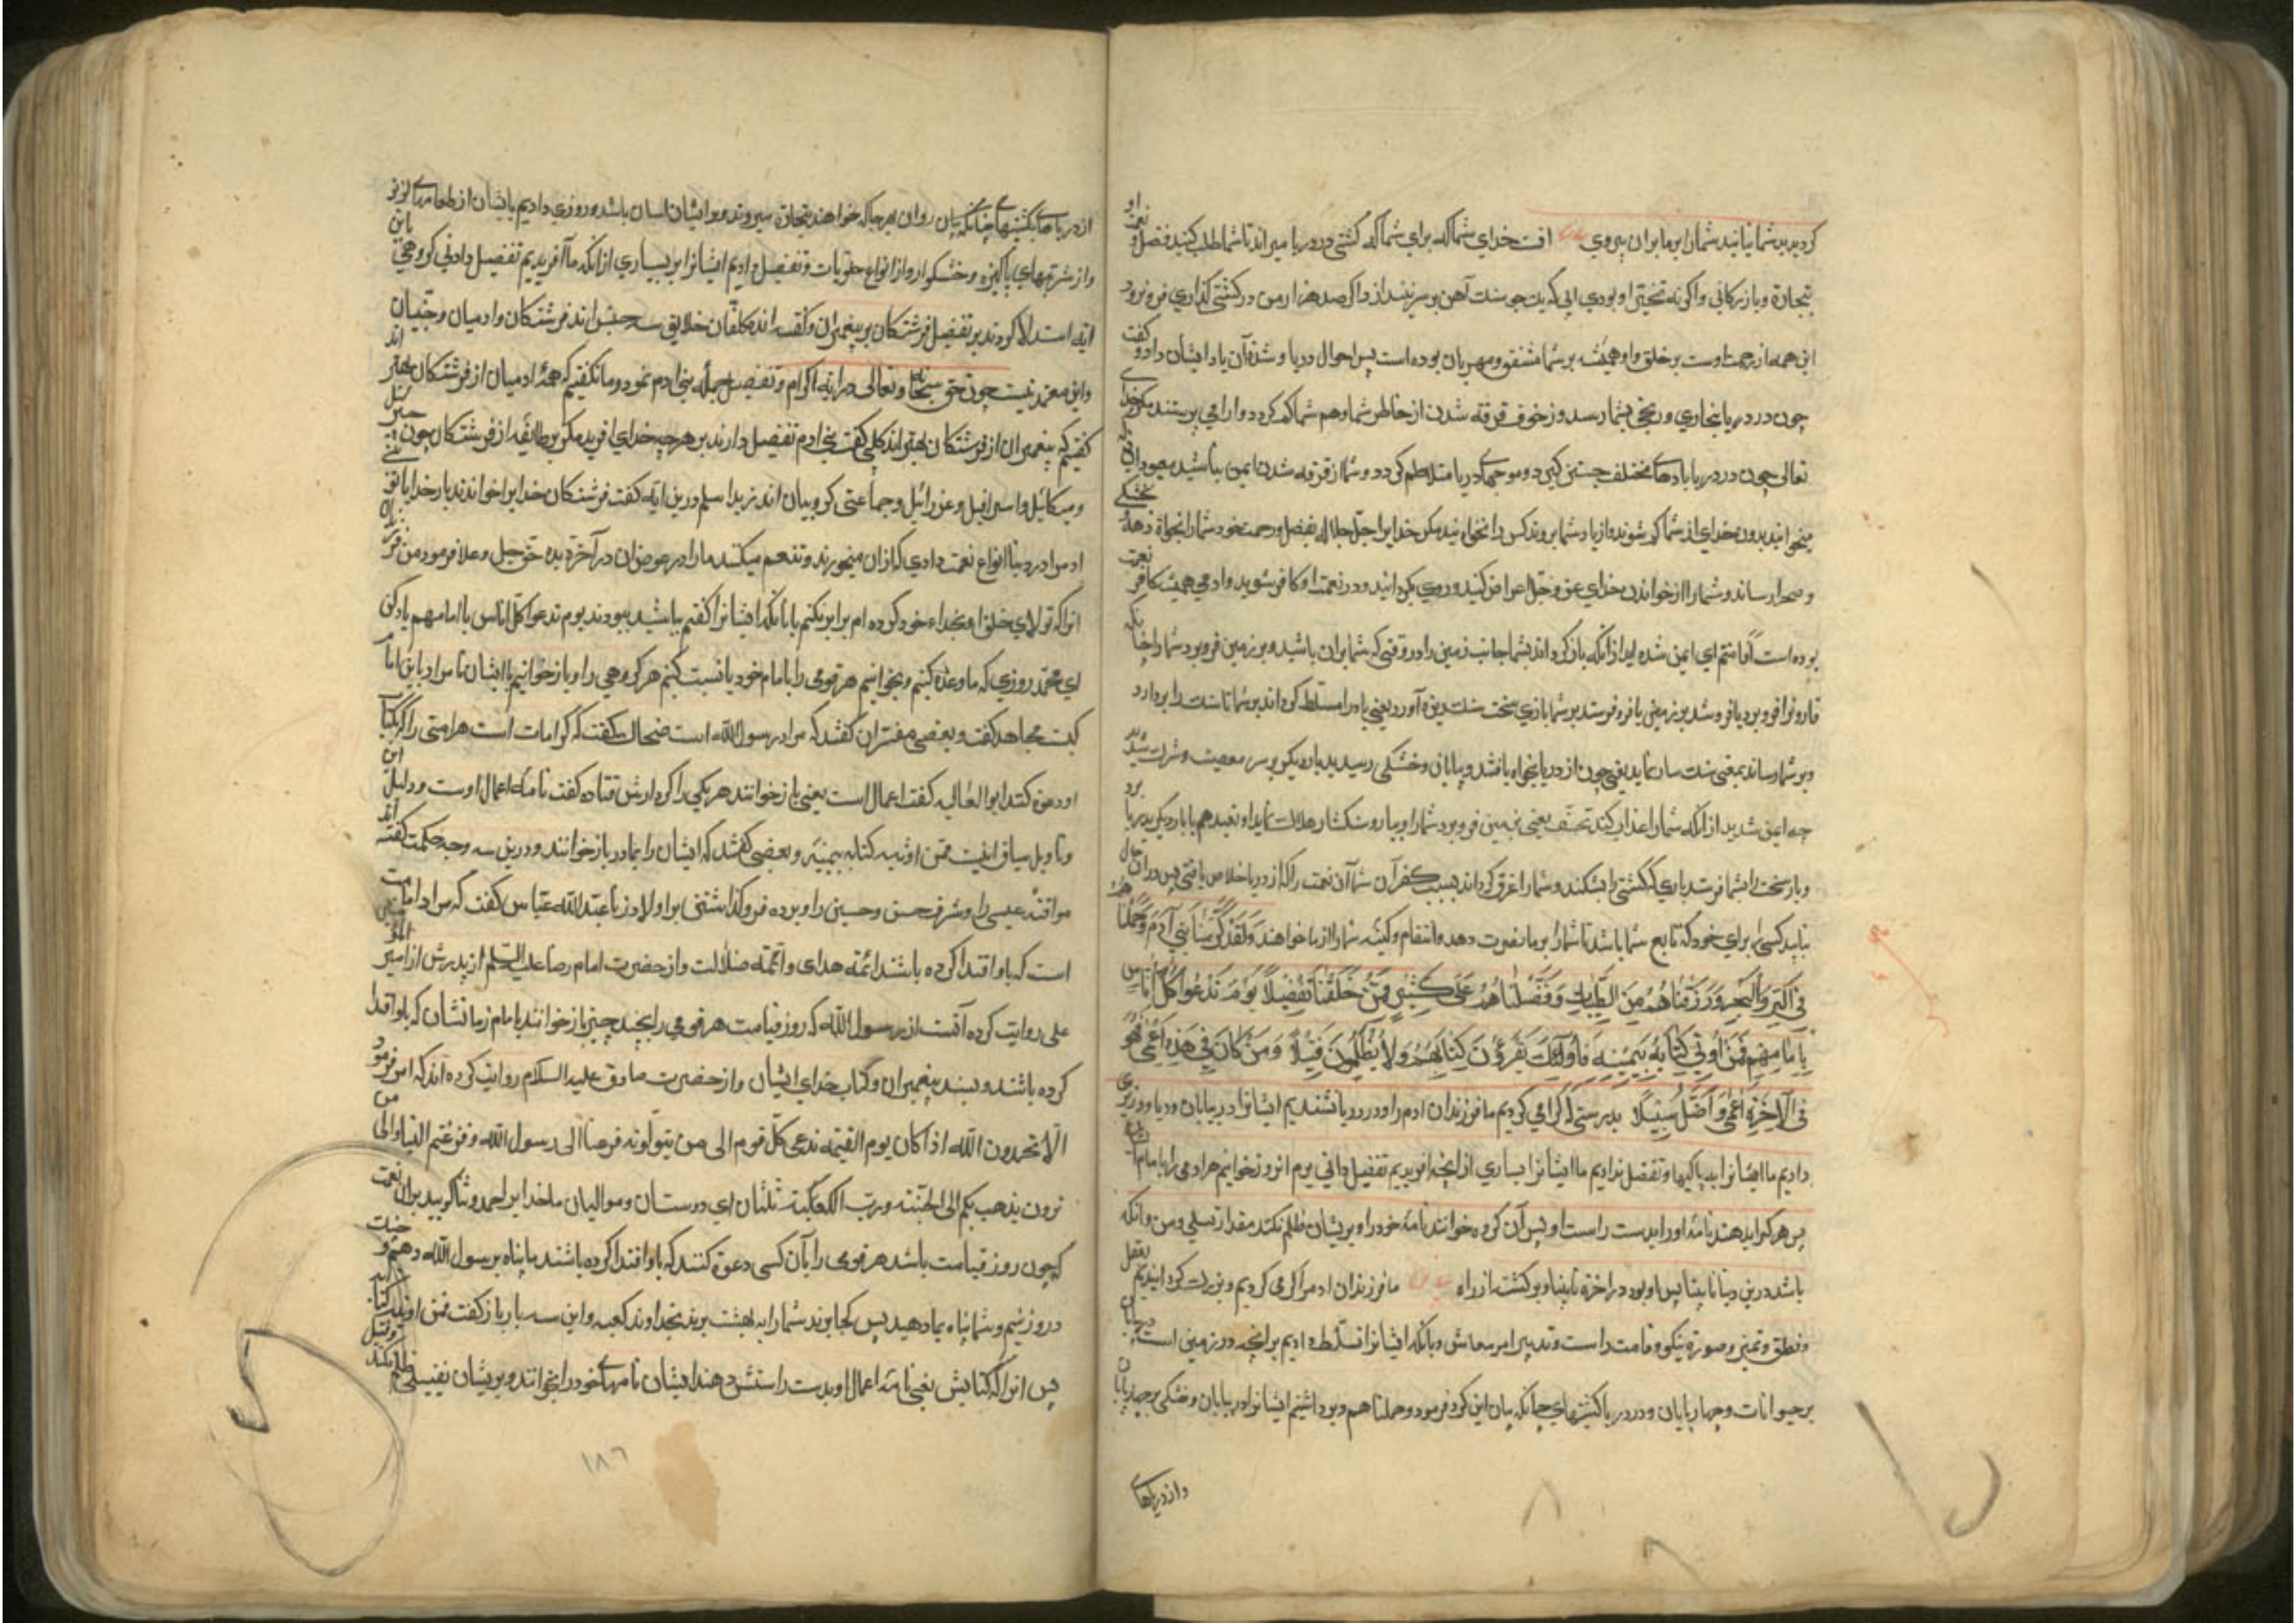 کردیدید شما نیابید شما را بر ما بران پیروی بیان انست خدای شما که برای شما که کشتی در دریا میراند تا شما طلب کنید فضل و نعمت او
تجارة و بازرکانی و اکر نه تختهٔ او بودی ایی که یک جو سنک آهن بر سر نیندازد اکر صد هزار من در کشتی کذاری فرو نرود
این همه از رحمت اوست بر خلق و او همیشه بر شما مشفق و مهربان بوده است پس احوال دریا و شدة آن یاد ایشان داد و کفت
چون در دریا بخاری و رنجی بشما رسد و ز خوف غرقه شدن از خاطر شما و هم شما کم کردد و ارامی پرستند مکر خدا
تعالی چون در دریا بادهای مختلف جستن کیرد و موجهای دریا متلاطم کردد و شما از غرقه شدن ایمن نباشید معبودانی که
میخوانید بدون خدای از شما کم شوند و از یاد شما بروند کس را نخوانید مکر خدایرا جل جلاله بفضل و رحمت خود شما را نجاة دهد بخشکی
و صحرا رساند و شما را از خواندن خدای عز و جل اعراض کنید و روی بکردانید و در نعمت او کافر شوید و ادمی همیشه کافر نعمت
بوده است أفأمنتم ای ایمن شده اید از آنکه باز کرداند بشما جانب زمین را در وقتی که شما بران باشید و بزمین فرو برد شما را چنانکه
قارونرا فرو برد یا فرو شد بزمین یا فرو فرستد بر شما بادی سخت سنک ریزه آورد یعنی باد را مسلط کرداند بر شما تا سنک را بردارد
و بر شما رساند بمعنی سنک سار نماید یعنی چون از دریا نجاة یافتند و بیابان و خشکی رسیدید بار دیکر بر سر معصیت و شرک شدید
چه ایمن شدید از انکه شما را عذاب کند بخسف یعنی بزمین فرو برد شما را و بیارد سنک شما را هلاک نماید او تعیدهم یا بار دیکر بدریا برد
و باد سخت را بشما فرستد بادی که کشتی را بشکند و شما را غرق کرداند بسبب کفرآن شما آن نعمت را که از دریا خلاص یافتی پس دران حال
نیابید کسی را برای خود که تابع شما باشد تا شما را بر ما نصرت دهد و انتقام و کینه شما را از ما خواهند وَلَقَدْ کَرَّمْنَا بَنِی آدَمَ وَحَمَلْنَاهُمْ
فِی الْبَرِّ وَالْبَحْرِ وَرَزَقْنَاهُمْ مِنَ الطَّیِّبَاتِ وَفَضَّلْنَاهُمْ عَلَی کَثِیرٍ مِمَّنْ خَلَقْنَا تَفْضِیلًا یَوْمَ نَدْعُوا کُلَّ أُنَاسٍ
بِإِمَامِهِمْ فَمَنْ أُوتِیَ کِتَابَهُ بِیَمِینِهِ فَأُولَئِکَ یَقْرَءُونَ کِتَابَهُمْ وَلَا یُظْلَمُونَ فَتِیلًا وَمَنْ کَانَ فِی هَذِهِ أَعْمَی فَهُوَ
فِی الْآخِرَةِ أَعْمَی وَأَضَلُّ سَبِیلًا بدرستی که کرامی کردیم ما فرزندان ادم را و در دریا نشندیم ایشانرا در بیابان و دریا و روزی
دادیم ما ایشانرا به پاکیها و تفضیل دادیم ما ایشانرا بسیاری از انچه افریدیم تفضیل دانی یوم انروز بخوانیم هر ادمی را بامام ایشان
پس هر کرا بدهند نامهٔ او را بدست راست او پس آن کروه خوانند نامهٔ خود را و بریشان ظلم نکند مقدار فتیلی و من و انکه
باشد درین دنیا نابینا پس او بود در اخرة نابینا و بر کشته از راه بیان ما فرزندان ادم را کرامی کردیم و بزرک کردانیدیم بعقل
و نطق و تمیز و صورة نیکو و قامت راست و تدبیر امر معاش و بانکه ایشانرا تسلط دادیم بر انچه در زمین است
بر حیوانات و چهارپایان و در دریا کشتیهای چنانکه بیان این کرد فرمود و حملناهم و برداشتیم ایشانرا در بیابان و خشکی بر چهارپایان
و از دریاهای
از دریاهای بکشتیهای چنانکه بیان روان هر جا که خواهند بتجارة میروند و بر ایشان اسان باشد و روزی دادیم بایشان از طعامهای لذیذ
و از شربتهای پاکیزه و خشکوار و از انواع حلویات و تفضیل دادیم ایشانرا بر بسیاری از انکه ما آفریدیم تفضیل دادنی کروهی باین
ایه استدلال کردند بر تفضیل فرشتکان بر پیغمبران و کفته اند مکلفان خلایق سه جنس اند فرشتکان و ادمیان و جنیان
و این معتمد نیست چون حق سبحانه و تعالی در ایه اکرام و تفضیل جملهٔ بنی ادم نمود و ما نکفتیم که همهٔ ادمیان از فرشتکان بهتر اند
کفتیم که پیغمبران از فرشتکان بهتر اند کلبی کفت بنی ادم تفضیل دارند بر هر چه خدای افرید مکر بر طایفه از فرشتکان چون جبرئیل
و میکائیل و اسرافیل و عزرائیل و جماعتی کروبیان اند زید اسلم درین ایه کفت فرشتکان خدایرا خواندند بار خدایا تو بنی
ادم را در دنیا انواع نعمت دادی که ازان میخورند و تنعم میکنند ما را در عوض ان در آخرة بده حق جل و علا فرمود من فرزندان
انرا که تولای خلق او بخداء خود کرده ام برابر نکنم با بانکه ایشانرا کفتم بباشید ببودند یوم ندعوا کل اناس بامامهم یاد کن
ای محمد روزی که ما وعده کنیم و بخوانیم هر قومی را بامام خود یا نسبت کنیم هر کروهی را و باز خوانیم با ایشان تا مراد باین امام
کیست مجاهد کفت و بعضی مفسران کفتند که مراد رسول الله است ضحاک کفت که کرامات است هر امتی را که بکتاب
او دعوة کنند ابو العالیه کفت اعمال است یعنی باز خوانند هر یکی را کردارش قتاده کفت نامهٔ اعمال اوست و دلیل این
و تاویل سیاق اینست فمن اوتی کتابه بیمینه و بعضی کفتند که ایشان را بمادر باز خوانند و درین سه وجه حکمت کفته اند
موافقة عیسی را و شرف حسن و حسین را و برده فرو کذاشتنی بر اولاد زنا عبد الله عباس کفت که مراد امامت
است که باو اقتدا کرده باشند ائمه هدی و ائمه ضلالت و از حضرت امام رضا علیه السلم از پدرش از امیر المؤمنین
علی روایت کرده آنست از رسول الله که روز قیامت هر قومی را بچند چیز باز خوانند بامام زمانشان که باو اقتدا
کرده باشند و بسنت پیغمبران و کتاب خدای ایشان و از حضرت صادق علیه السلام روایت کرده اند که او فرمود
الا تحمدون الله اذا کان یوم القیمة ندعی کل قوم الی من یتولونه فرعنا الی رسول الله و فزعتم الینا و الی من
ترون یذهب بکم الی الجنة و رب الکعبة ثلثا ای دوستان و موالیان ما خدایرا حمد و شکر کویید بران نعمت
که چون روز قیامت باشد هر قومی را بآن کسی دعوة کنند که باو اقتدا کرده باشند ما پناه برسول الله دهیم و
در و زنیم و شما پناه بما دهید پس کجا برند شما را به بهشت برند بخداوند کعبه و این سه بار باز کفت فمن اوتی کتابه
پس انرا که کتابش یعنی نامهٔ اعمال او بدست راستش دهند ایشان نامهای خود را بخوانند و بریشان بفتیلی ظلم نکنند
١٨٦